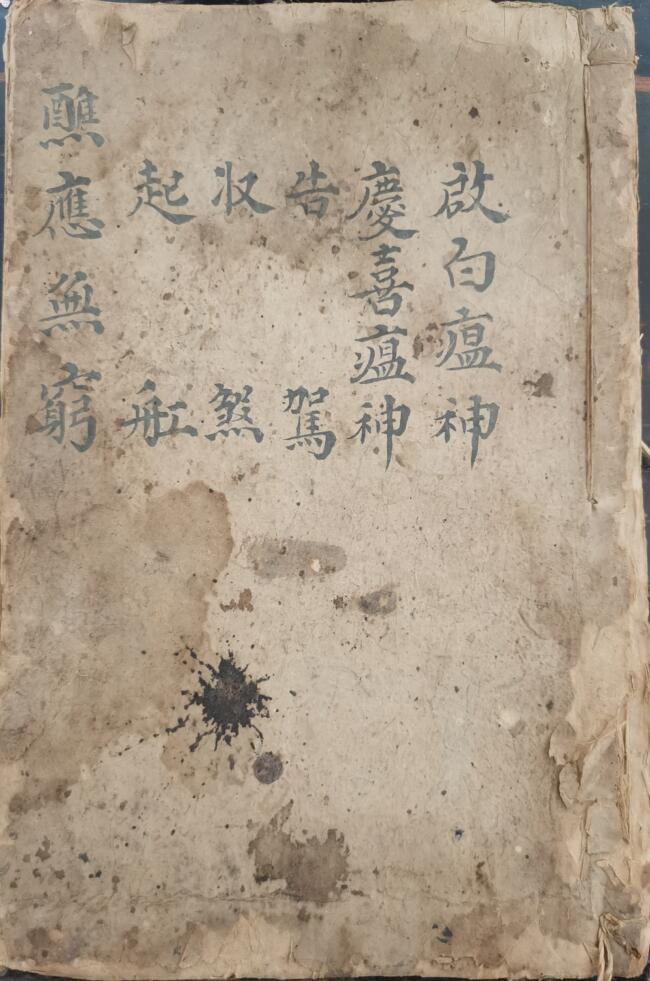 啟白瘟神
慶喜瘟神
告駕
収煞
起舡
醮應無窮